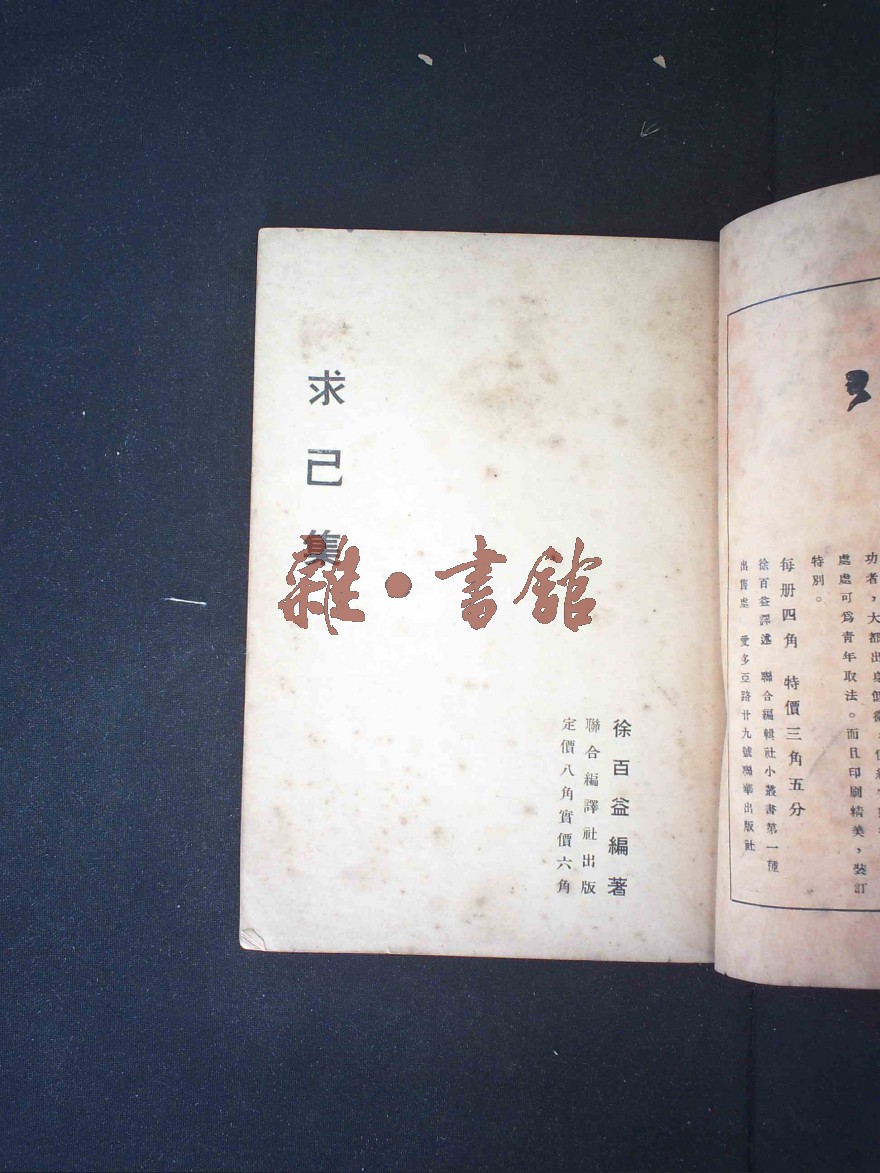 功者，大都出
處處可爲青年取法。而且印刷精美，裝訂
特別。
每册四角　特價三角五分
徐百益譯述　聯合編輯社小叢書第一種
出售處　愛多亞路廿九號聯華出版社
徐百益編著
聯合編譯社出版
定價八角實價六角
求己集
雜・書館